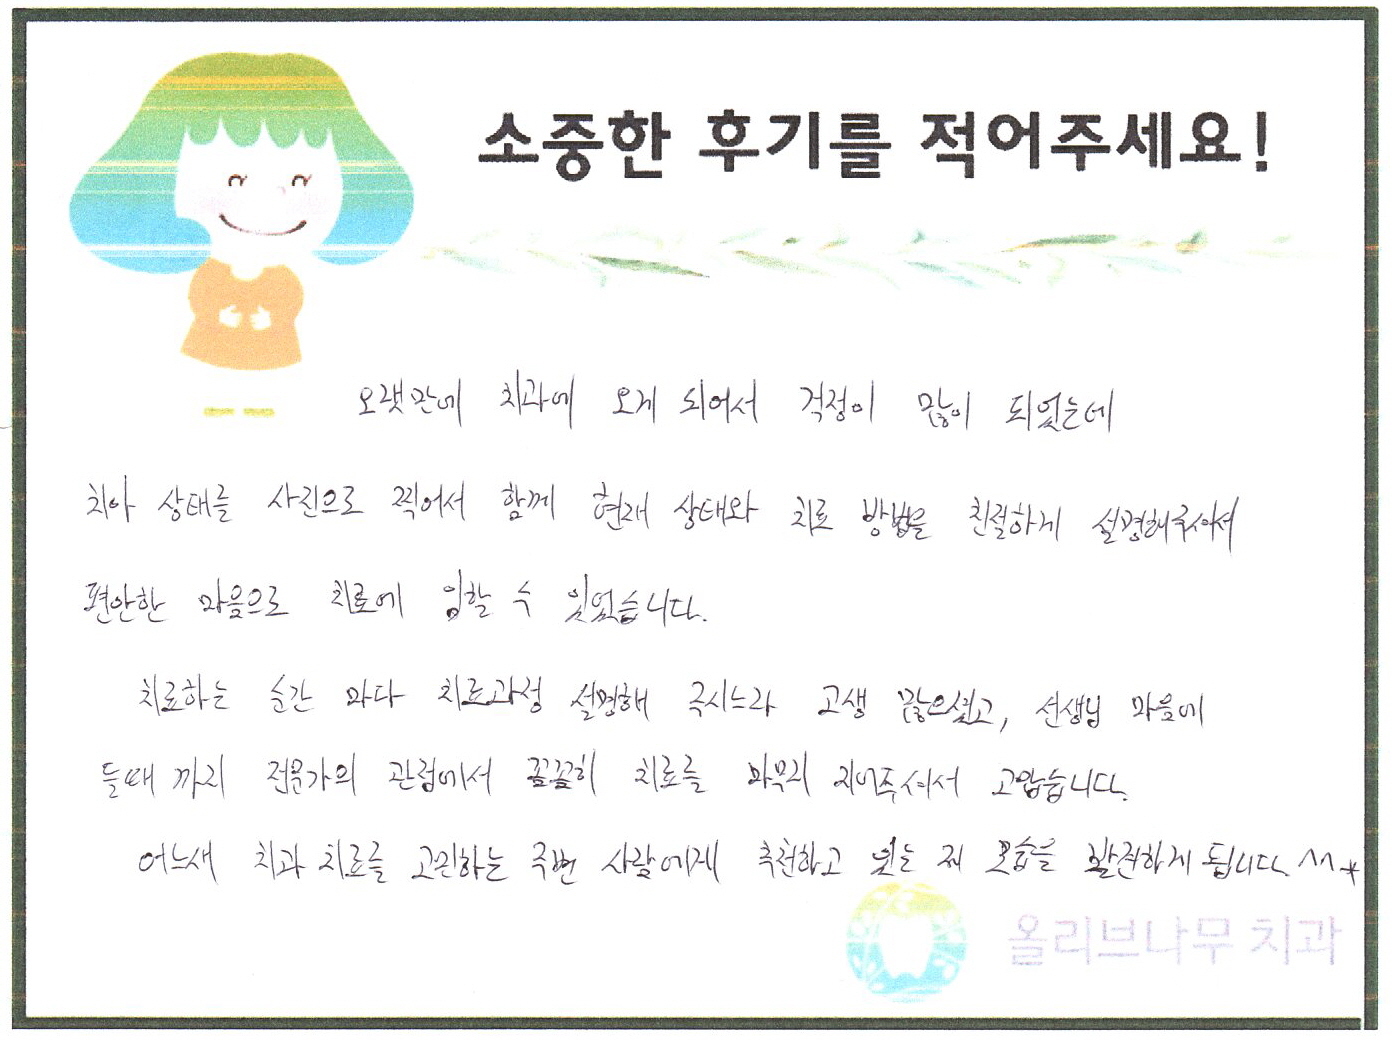 소중한 후기를 적어주세요!
오랫만에 치과에 오게 되어서 걱정이 많이 되었는데
치아 상태를 사진으로 찍어서 함께 현재 상태와 치료 방법을 친절하게 설명해주셔서
편안한 마음으로 치료에 임할 수 있었습니다.
치료하는 순간 마다 치료과정 설명해 주시느라 고생 많으셨고, 선생님 마음에
들때 까지 전문가의 관점에서 꼼꼼히 치료를 마무리 지어주셔서 고맙습니다.
어느새 치과 치료를 고민하는 주변 사람에게 추천하고 있는 제 모습을 발견하게 됩니다. ^^*
올리브나무 치과